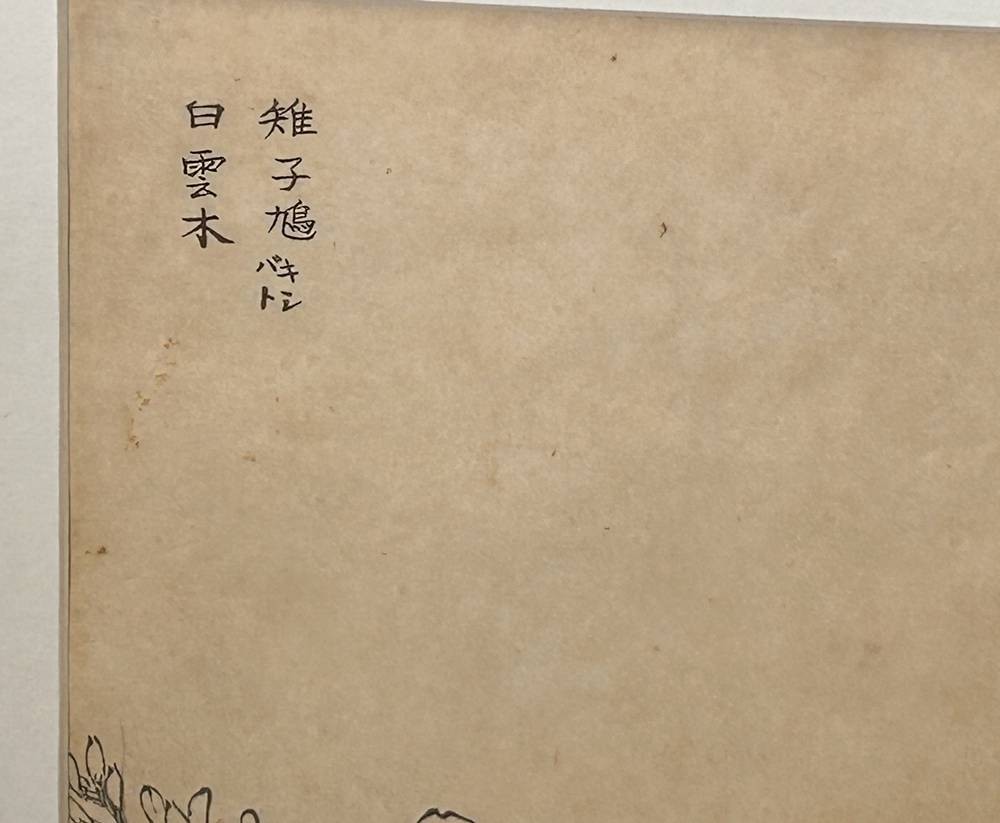 雉子鳩 キシバト
白雲木